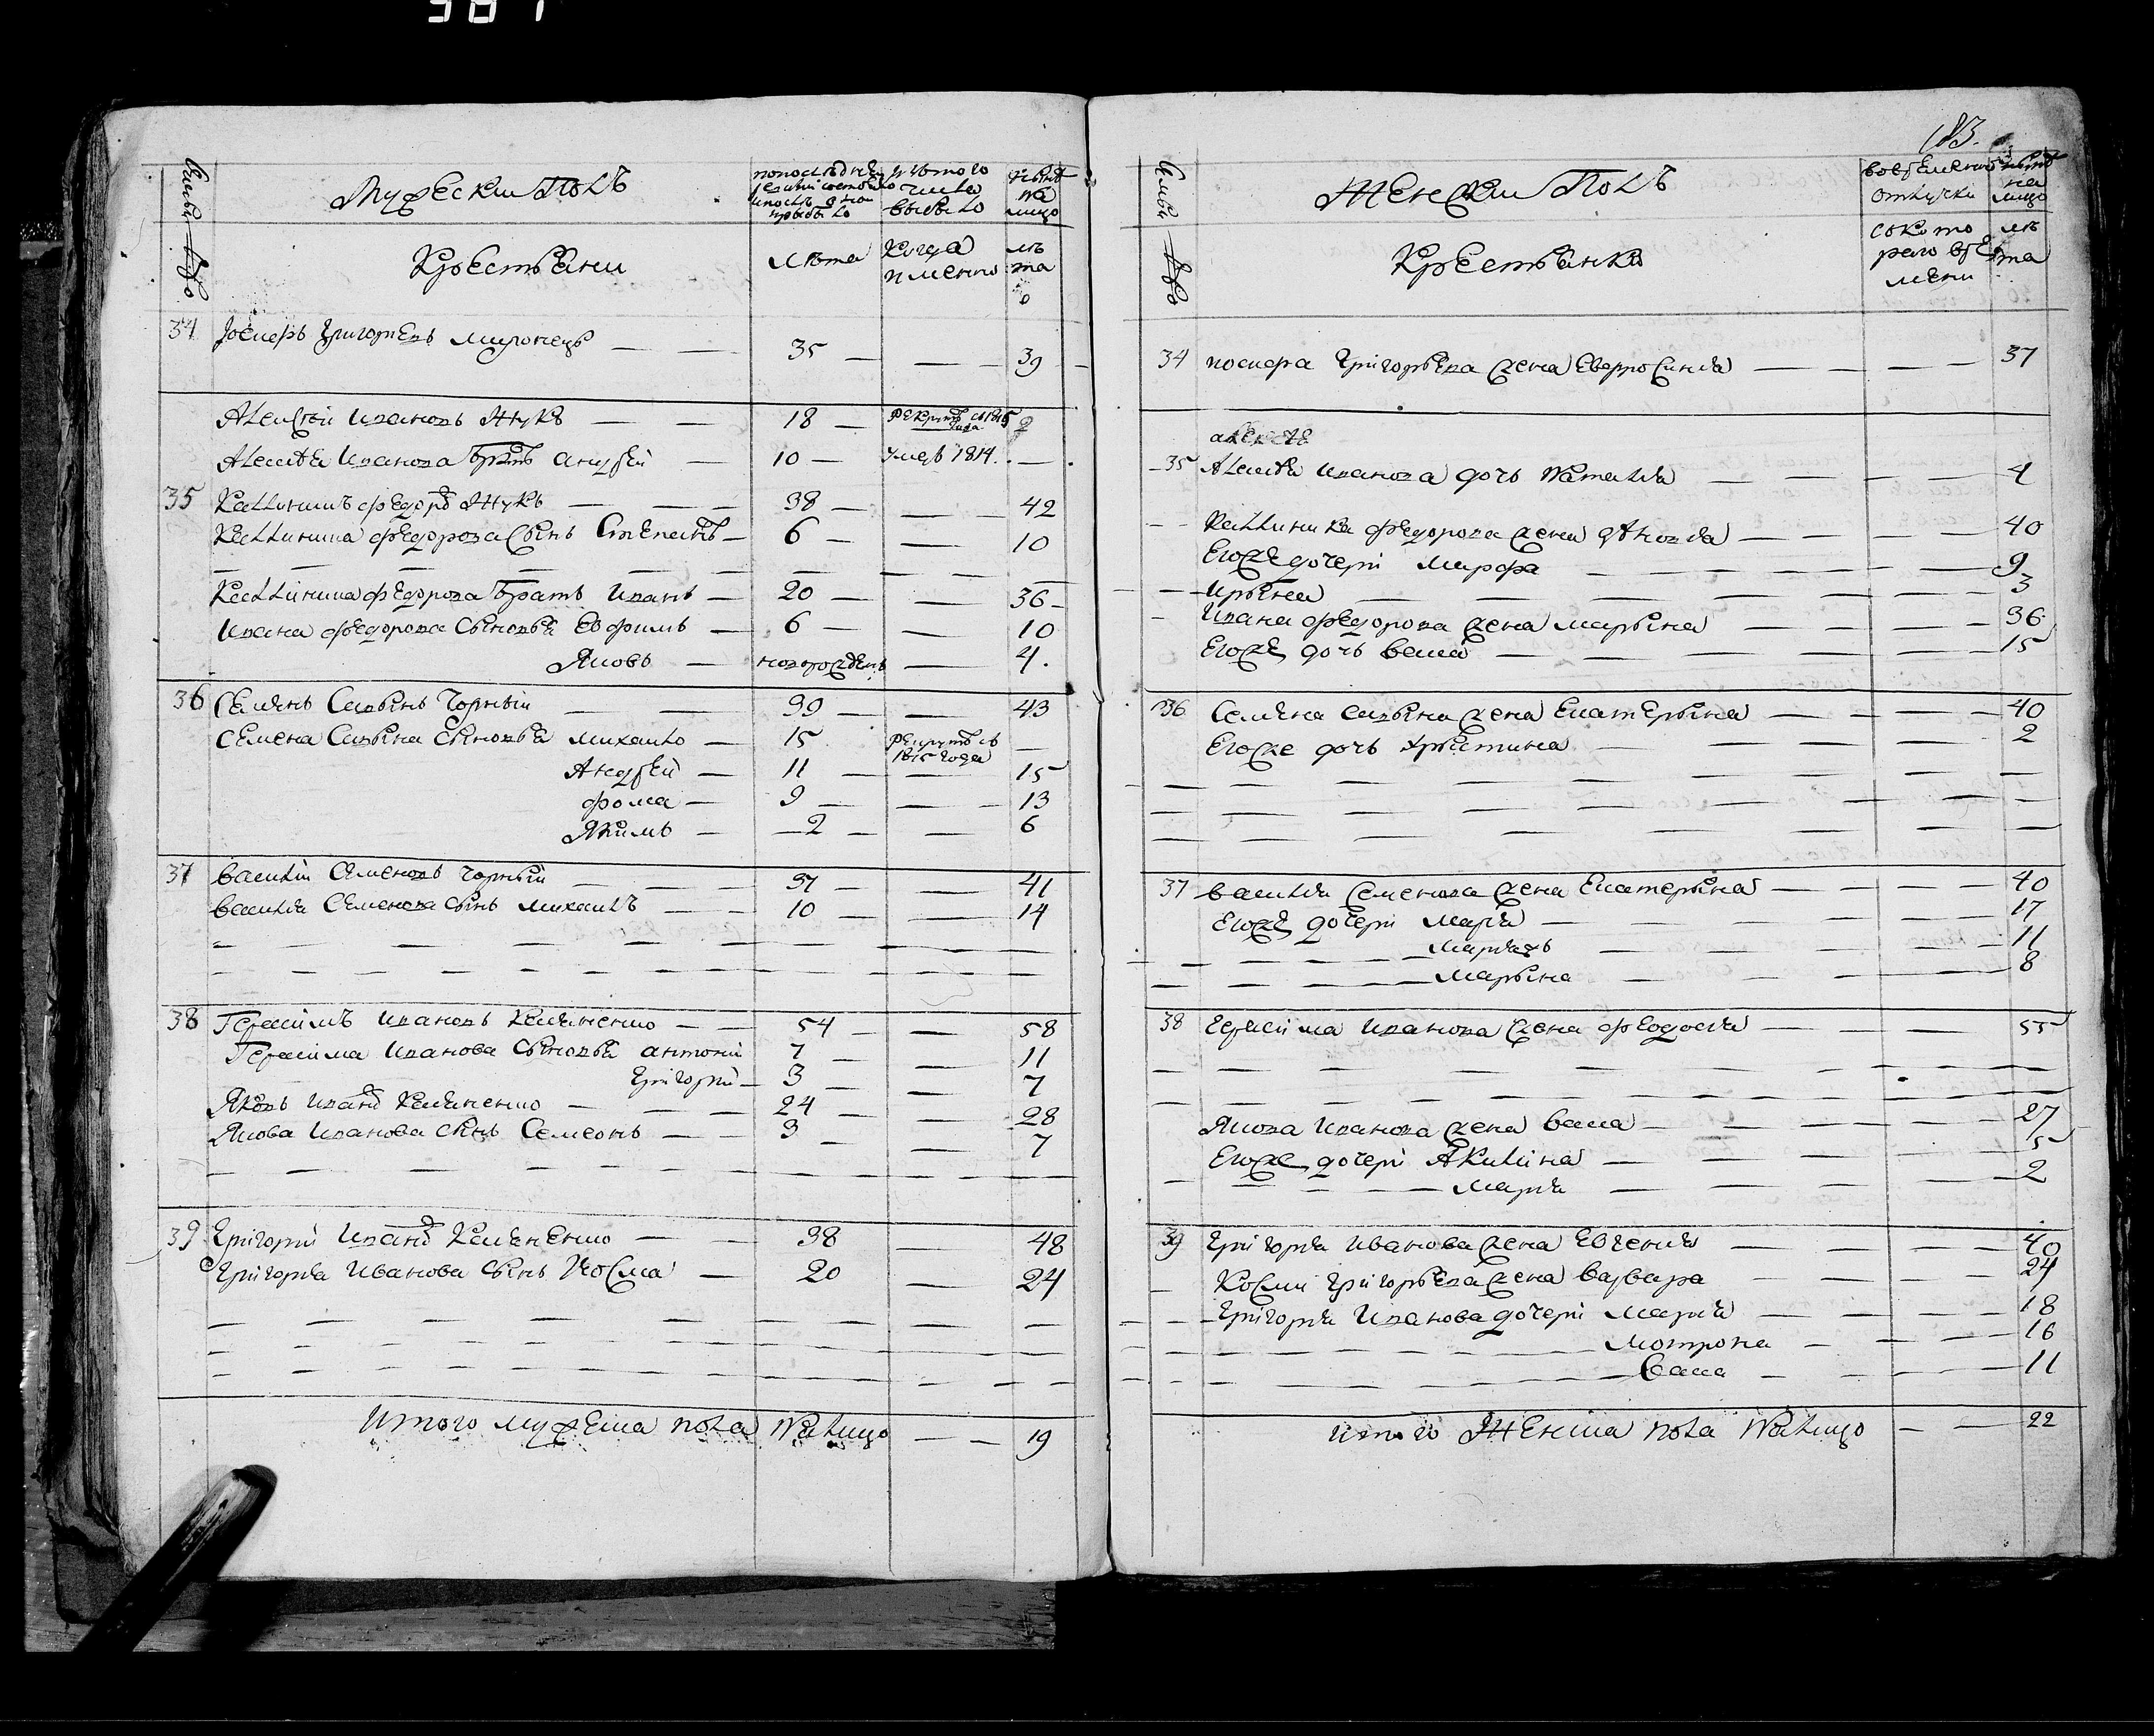 387
Мужеский Полъ
по последней ревизии состояло и после оной прибыло
из того числа выбыло
ныне на лицо
Крестьяни
лѣта
когда именно
лѣта
34 Григорьевъ 35 — — 39
Алексѣй Ивановъ Жукъ — — 18 — рекрутъ съ 1815 года
Алексѣя Иванова братъ Андрей — 10 — умеръ 1814. —
35 Каллиникъ Федоровъ Жукъ — — — 38 — — 42
Каллиника Федорова сынъ Степанъ — 6 — — 10
Каллиника Федорова братъ Иванъ — 20 — — 36
Ивана Федорова сыновья Евфимъ — 6 — — 10
Яковъ — новорожденъ — 4.
36 Семенъ Саввинъ Чорный — — 39 — — 43
Семена Саввина сыновья Михайло — 15 рекрутъ съ 1815 года —
Андрей — 11 — — 15
Фома — 9 — — 13
Якимъ — 2 — — 6
37 Василій Семеновъ Чорный — — 37 — — 41
Василія Семенова сынъ Михаилъ — — 10 — — 14
38 Герасимъ Ивановъ — — 54 — — 58
Герасима Иванова сыновья Антоній 7 — — 11
Григорій — 3 — — 7
Яковъ Ивановъ — — 24 — — 28
Якова Иванова сынъ Семеонъ — — 3 — — 7
39 Григорій Ивановъ — — 38 — 48
Григорія Иванова сынъ Косма — 20 — 24
Итого мужеска пола на лицо — — 19
183.
Женский Полъ
во временной отлучки
ныне на лицо
Крестьянки
съ которого времени
лѣта
34 Григорьева жена Евфросинія — — — — 37
35 Алексѣя Иванова дочь Наталія — — — 4
Каллиника Федорова жена — — — 40
Егоже дочери Марфа — — — 9
Ирина — — — 3
Ивана Федорова жена Марина — — — 36
Егоже дочь Васса — — — 15
36 Семена Саввина жена Екатерина — — — 40
Егоже дочь Христина — — — 2
37 Василія Семенова жена Екатерина — — — 40
Егоже дочери Марія — — — 17
11
Марина — — — 8
38 Герасима Иванова жена Феодосія — — — 55
Якова Иванова жена Васса — — — 27
Егоже дочери Акилина — — — 5
Марія — — — 2
39 Григорія Иванова жена Евгенія — — — 40
Космы Григорьева жена Варвара — — — 24
Григорія Иванова дочери Марія — — — 18
Мотрона — — — 16
Васса — — — 11
итого Женска пола на лицо — — 22